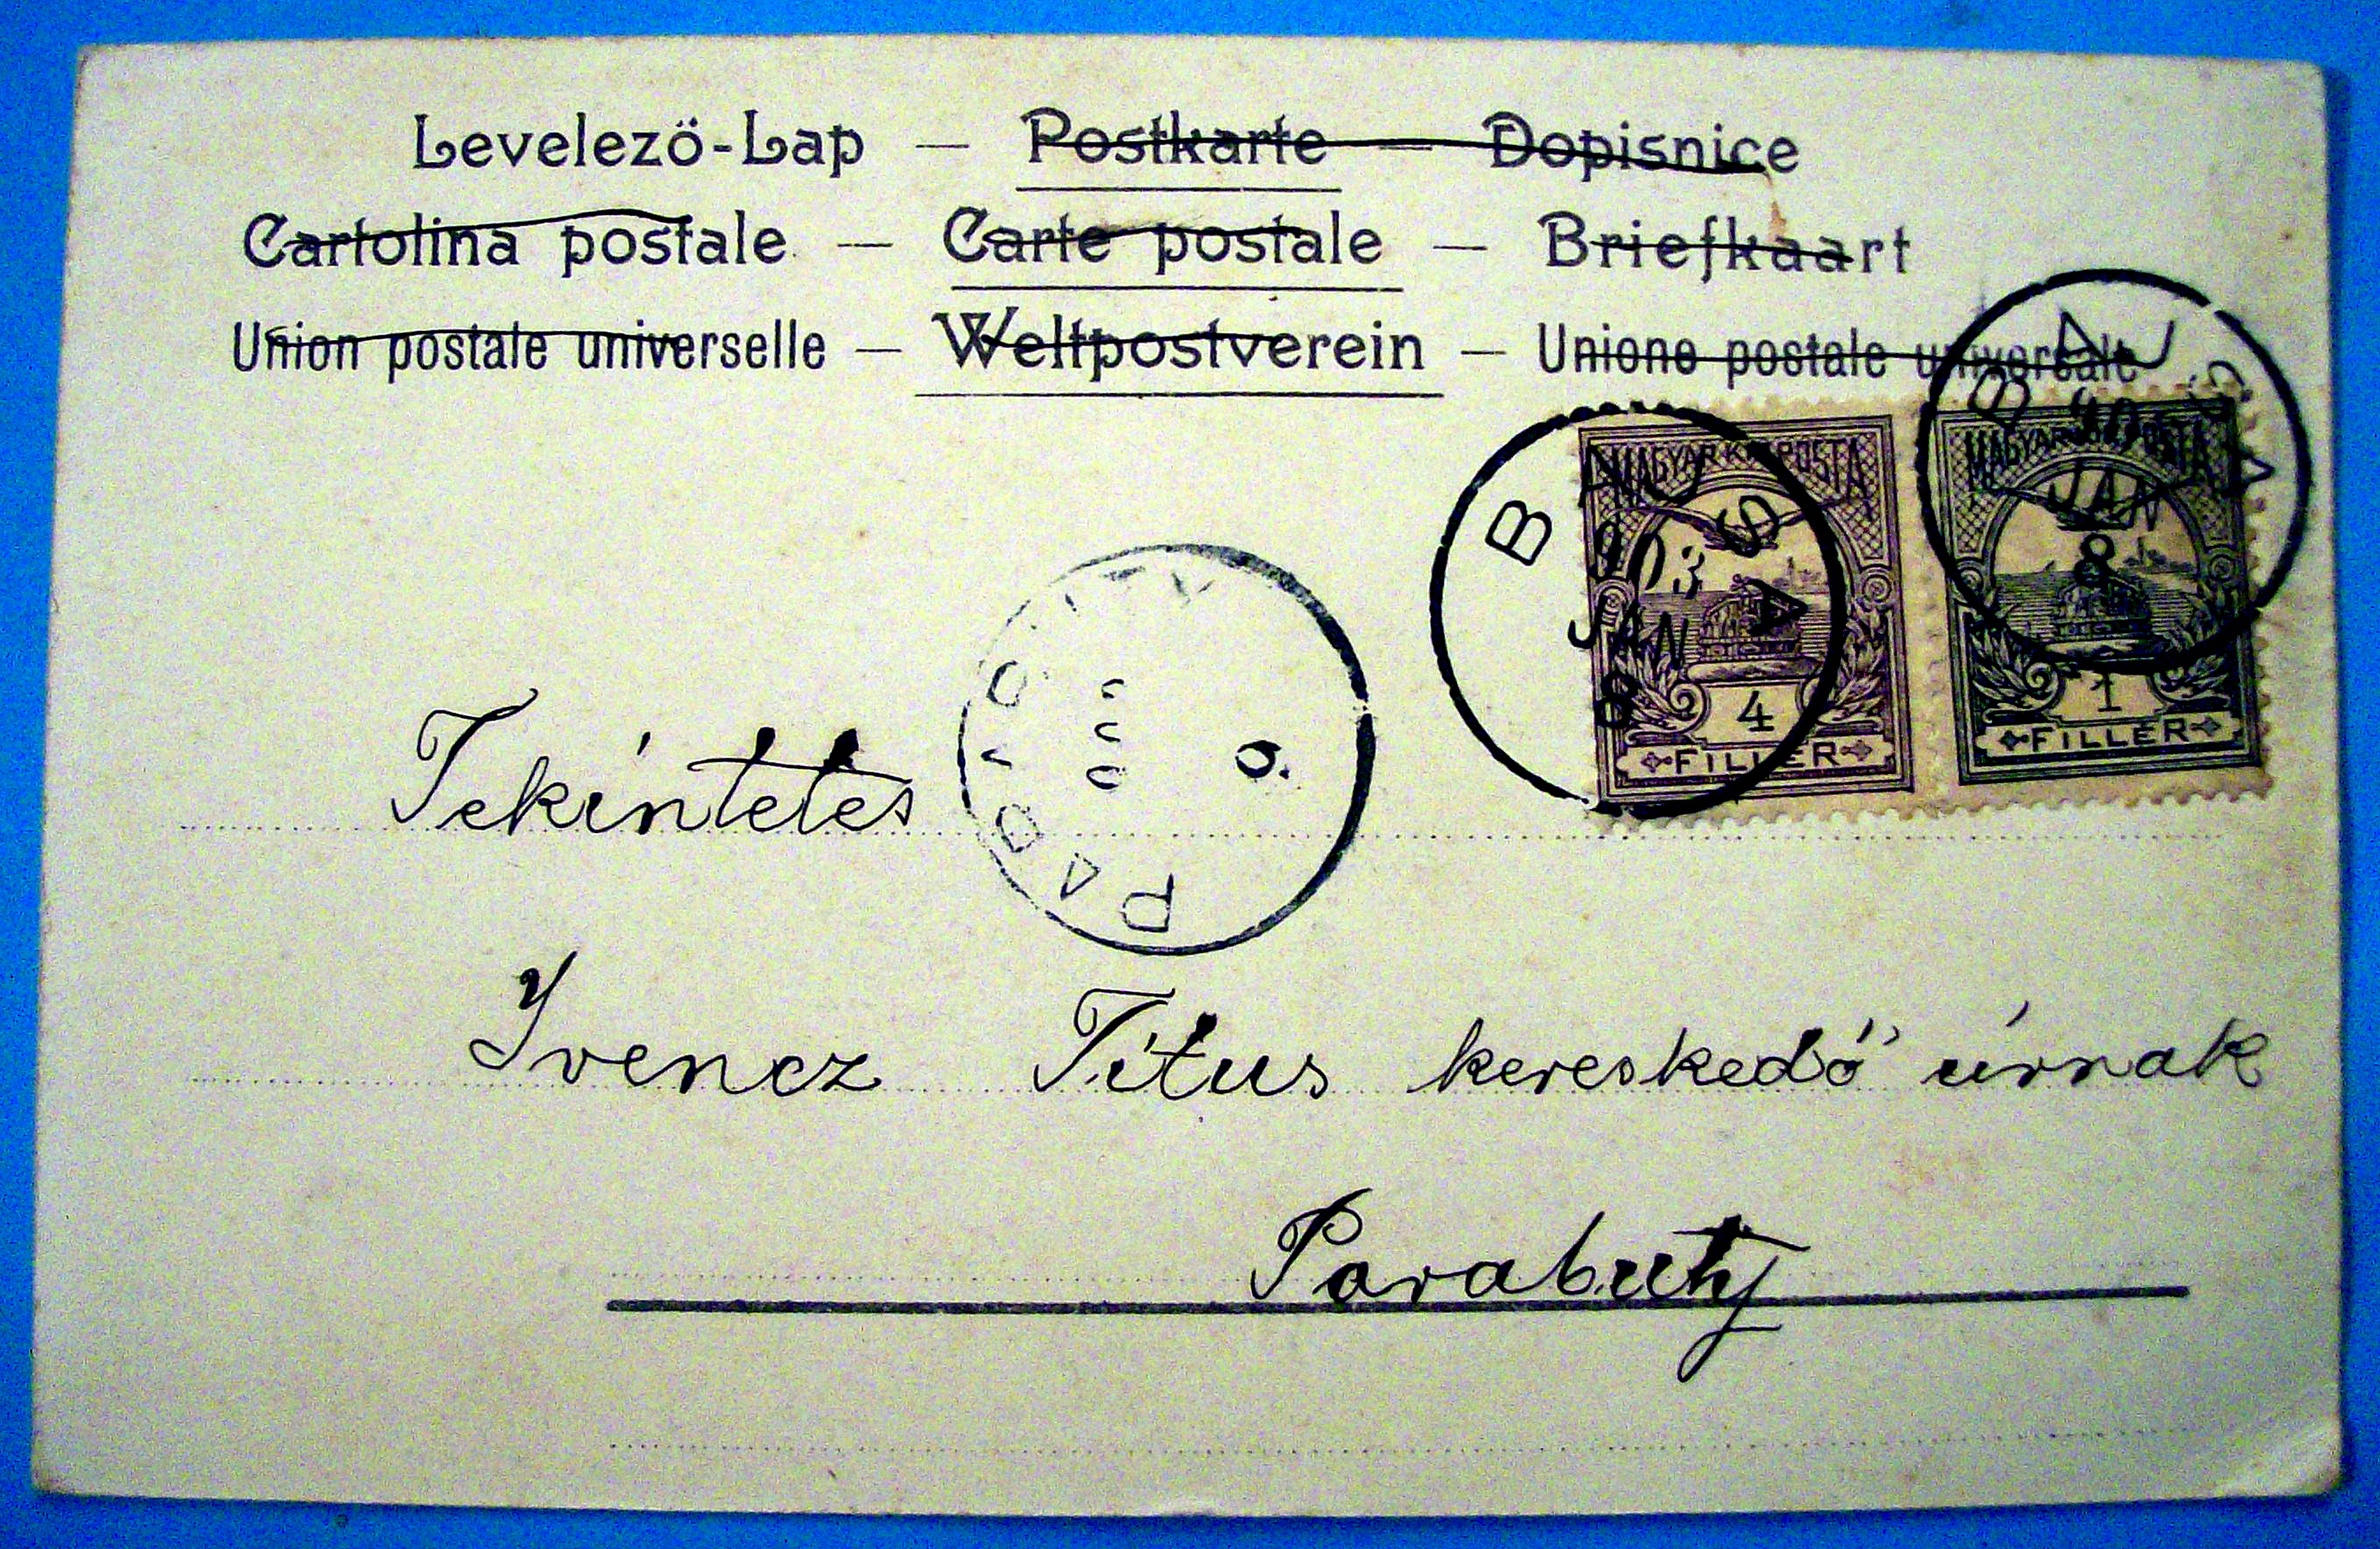 Levelezö-Lap — Postkarte — Dopisnice
Cartolina postale — Carte postale — Briefkaart
Union postale universelle — Weltpostverein — Unione postale universale
BAJSA
903
JAN
8
MAGYAR KIR. POSTA
4
FILLER
BAJSA
903
JAN
8
MAGYAR KIR. POSTA
1
FILLER
Tekintetes
Ivencz Titus kereskedő úrnak
Parabuty